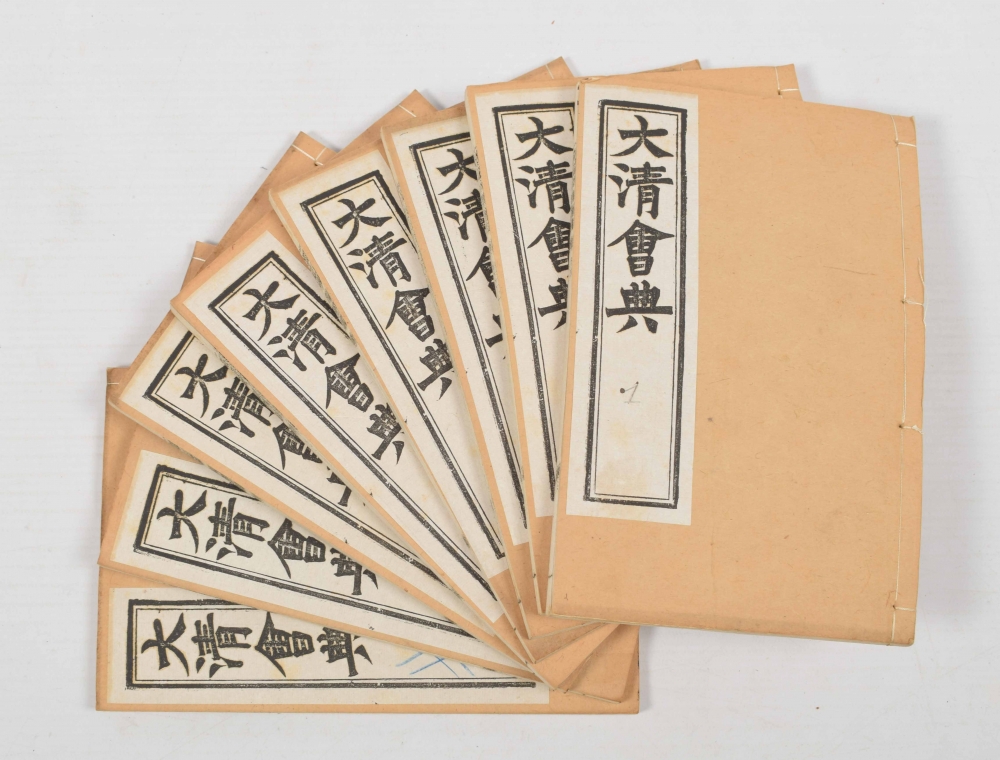 大清會典
1
大清會典
大清會典
大清會典
大清會典
大清會典
大清會典
大清會典